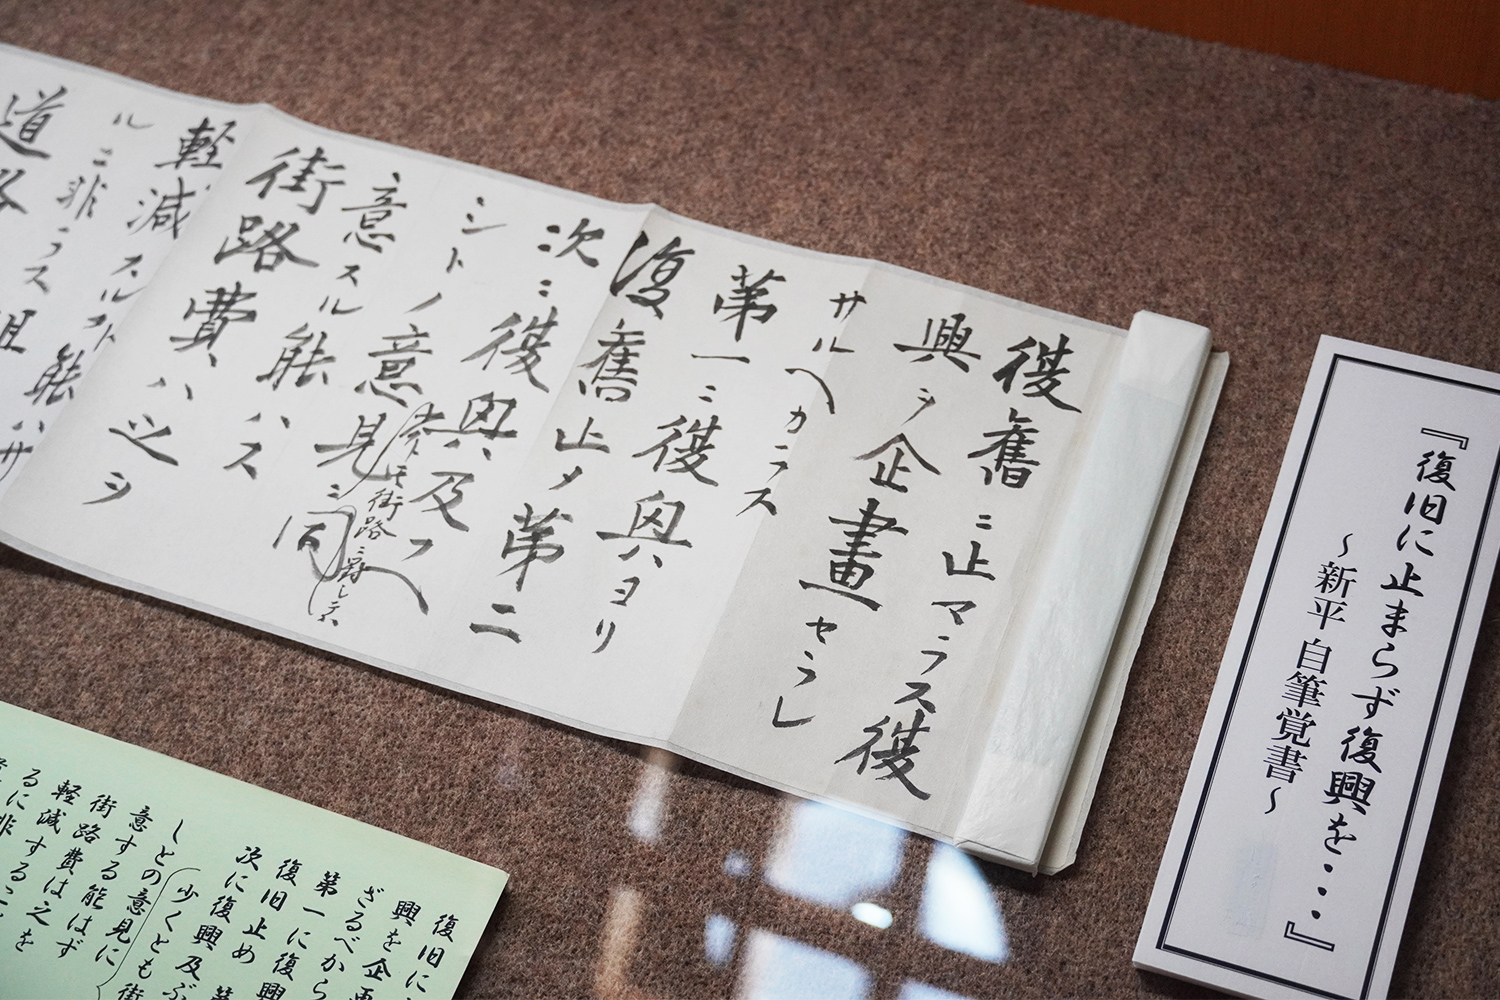 『復旧に止まらず復興を・・・』
～新平 自筆覚書～
復舊ニ止マラス復
興ヲ企畫セラレ
サルヘカラス
第一ニ復興ヨリ
復舊止メ第二
次ニ復興及フヘ
シトノ意見ニ同
少クトモ街路ニ
意スル能ハス
街路費ハ之ヲ
軽減スルコト
ルニ非ラス
能ハサ
道路
復旧に
興を企画
ざるべから
第一に復興
復旧止め
次に復興及ぶ
しとの意見に
少くとも街
意する能はず
街路費は之を
軽減すること
るに非